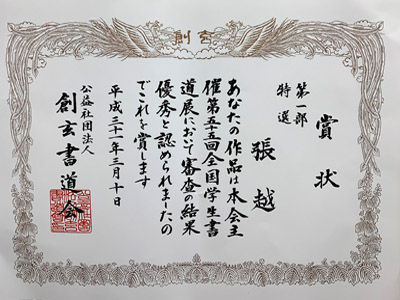 創玄
賞状
第一部
特選
張越
あなたの作品は本会主
催第五十五回全国学生書
道展において審査の結果
優秀と認められましたの
でこれを賞します
平成三十一年三月十日
公益社団法人
創玄書道会